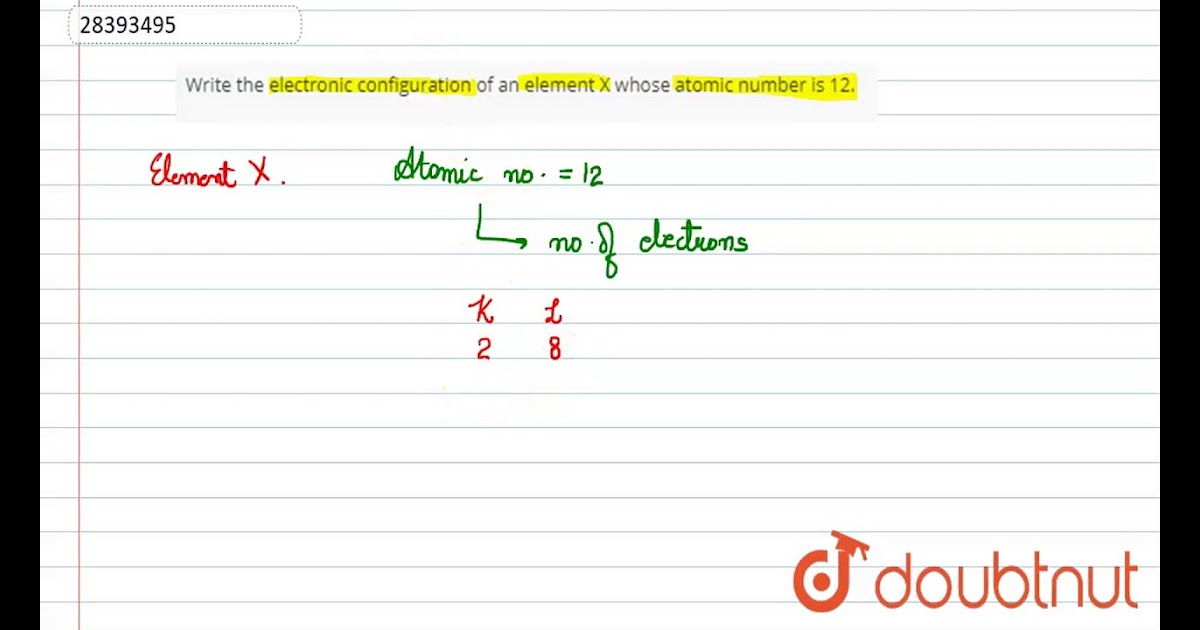 28393495
Write the electronic configuration of an element X whose atomic number is 12.
Element X. Atomic no. = 12
no. of electrons
K L
2 8
doubtnut